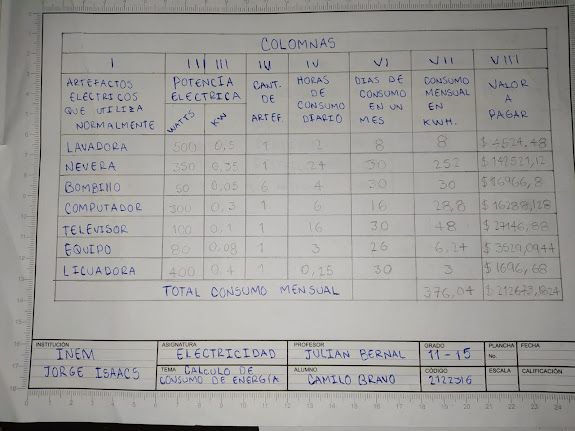 COLOMNAS
I II III IV IV VI VII VIII
ARTEFACTOS ELECTRICOS QUE UTILIZA NORMALMENTE POTENCIA ELECTRICA WATTS KW CANT. DE ARTEF. HORAS DE CONSUMO DIARIO DIAS DE CONSUMO EN UN MES CONSUMO MENSUAL EN KWH. VALOR A PAGAR
LAVADORA 500 0,5 1 2 8 8 $4524,48
NEVERA 350 0,35 1 24 30 252 $142521,12
BOMBILLO 50 0,05 6 4 30 30 $16966,8
COMPUTADOR 300 0,3 1 6 16 28,8 $16288,128
TELEVISOR 100 0,1 1 16 30 48 $27146,88
EQUIPO 80 0,08 1 3 26 6,24 $3529,0944
LICUADORA 400 0,4 1 0,25 30 3 $1696,68
TOTAL CONSUMO MENSUAL 376,04 $212673,1824
INSTITUCIÓN ASIGNATURA PROFESOR GRADO PLANCHA FECHA
INEM ELECTRICIDAD JULIAN BERNAL 11-15 No.
JORGE ISAACS TEMA CALCULO DE CONSUMO DE ENERGÍA ALUMNO CAMILO BRAVO CÓDIGO 2122316 ESCALA CALIFICACIÓN